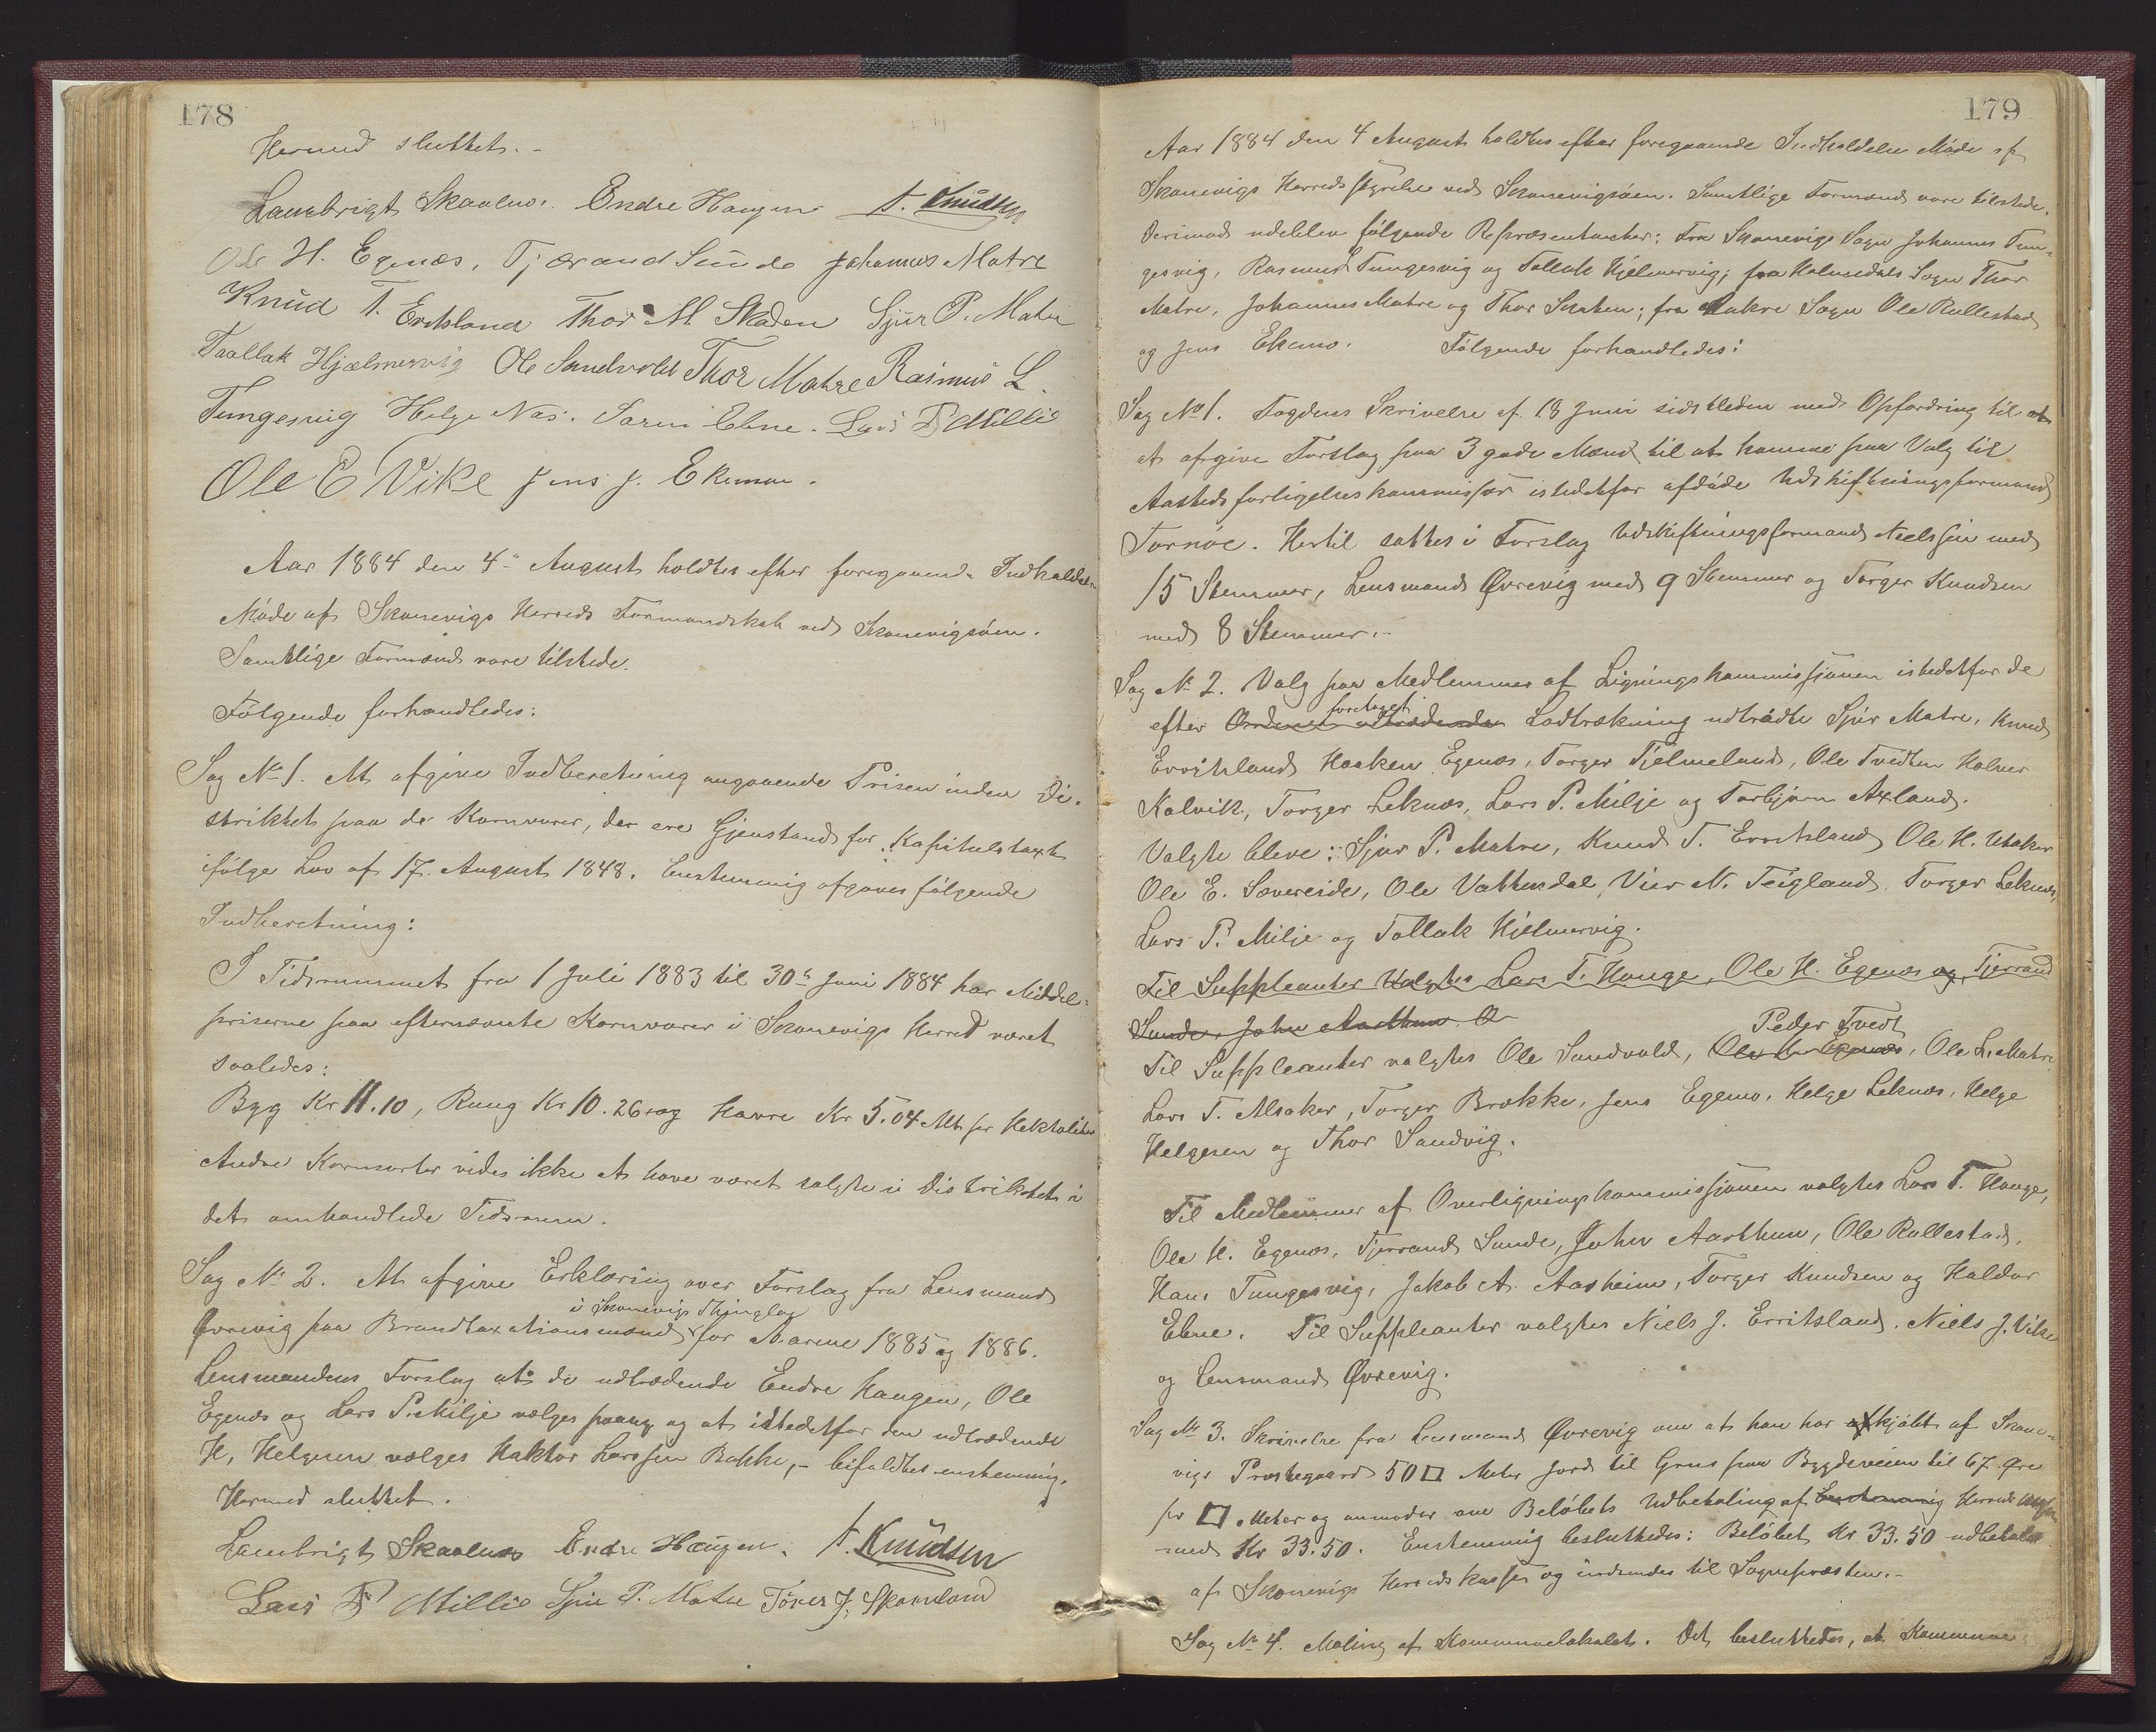 178
Hermed sluttet. -
Lambrigt Skaalnes. Endre Haugen T. Knudsen
Ole H. Egenæs, Tjærand Sunde Johannes Matre
Knud T. Eritsland Thor M. Skaden Sjur P. Matre
Taallak Hjælmervig Ole Sandvold Thor Matre Rasmus L.
Tungesvig Helge Næs. Søren Ebne. Lars P Millie
Ole E Vike Jens J. Ekemoe.
Aar 1884 den 4de August holdtes efter foregaaende Indkaldelse
Møde af Skonevigs Herreds Formandskab ved Skonevigsøen.
Samtlige Formænd vare tilstede.
Følgende forhandledes:
Sag No 1. At afgive Indberetning angaaende Prisen inden Di-
striktet paa de Kornvarer, der ere Gjenstand for Kapitelstaxt
ifølge Lov af 17. August 1848. Enstemmig afgaves følgende
Indberetning:
I Tidsrummet fra 1 Juli 1883 til 30te Juni 1884 har Middel-
priserne paa efternævnte Kornvarer i Skonevigs Herred været
saaledes:
Byg Kr 11.10, Rug Kr 10.26 og Havre Kr 5.04 Alt per Hektoliter
Andre Kornsorter vides ikke at have været solgte i Distriktet i
det omhandlede Tidsrum.
Sag No 2. At afgive Erklæring over Forslag fra Lensmand
i Skonevigs Thinglag
Øvrevig paa Brandtaxationsmænd for Aarene 1885 og 1886.
Lensmandens Forslag at de udtrædende Endre Haugen, Ole
Egenæs og Lars P. Milje vælges paany og at istedetfor den udtrædende
H. Helgesen vælges Haktor Larssen Bakke, - bifaldtes enstemmig.
Hermed sluttet.
Lambrigt Skaalnes Endre Haugen. T. Knudsen
Lars P Millie Sjur P. Matre Tørres J. Skomland
179
Aar 1884 den 4 August holdtes efter foregaaende Indkaldelse Møde af
Skonevigs Herredsstyrelse ved Skonevigsøen. Samtlige Formænd vare tilstede.
Derimod udeblev følgende Repræsentanter: Fra Skonevigs Sogn Johannes Tun-
gesvig, Rasmus Tungesvig og Tollak Hjelmervig; fra Holmedals Sogn Thor
Matre, Johannes Matre og Thor Skaten; fra Aakre Sogn Ole Rullestad
og Jens Ekemo. Følgende forhandledes:
Sag No 1. Fogdens Skrivelse af 18 Juni sidstleden med Opfordring til at
at afgive Forslag paa 3 gode Mænd til at komme paa Valg til
Aastedsforligelseskommissær istedetfor afdøde Udskiftningsformand
Tornøe. Hertil sattes i Forslag Udskiftningsformand Nielsen med
15 Stemmer, Lensmand Øvrevig med 9 Stemmer og Torger Knudsen
med 8 Stemmer. -
Sag No 2. Valg paa Medlemmer af Ligningskommissionen istedetfor de
foretaget
efter Ordenen udtrædende Lodtrækning udtrådte Sjur Matre, Knud
Erritsland Haaken Egenæs, Torger Tjelmeland, Ole Tvedten Halvor
Kalvik, Torger Leknæs, Lars P. Milje og Torbjørn Axland.
Valgte bleve: Sjur P. Matre, Knud T. Erritsland Ole H. Utaker
Ole E. Sævereide, Ole Vattendal, Vier N. Teigland Torger Leknæs,
Lars P. Milje og Tollak Hjelmervig.
Til Suppleanter valgtes Lars T. Hauge, Ole H. Egenæs og Tjerrand
Sunde, John Aarthun. O
Peder Tvedt
Til Suppleanter valgtes Ole Sandvold, Ole H. Egenæs, Ole L. Matre
Lars T. Alsaker, Torger Brække, Jens Egemo, Helge Leknæs, Helge
Helgesen og Thor Sandvig.
Til Medlemmer af Overligningskommissionen valgtes Lars T. Hauge,
Ole H. Egenæs, Tjerrand Sunde, John Aarthun, Ole Rullestad,
Hans Tungesvig, Jakob A. Aasheim, Torger Knudsen og Haldor
Ebne. Til Suppleanter valgtes Niels J. Erritsland. Niels J. Vike
og Lensmand Øvrevig.
Sag No 3. Skrivelse fra Lensmand Øvrevig om at han har afkjøbt af Skone-
vigs Præstegaard 50 □ Meter Jord til Grus paa Bygdeveien til 67 Øre
per □ Meter og anmoder om Beløbets Udbetaling af Enstemmig Herreds
med Kr 33.50. Enstemmig besluttedes: Beløbet Kr 33.50 udbetales
af Skonevigs Herredskasse og indsendes til Sognepræsten. -
Sag No 4. Maling af Kommunelokalet. Det besluttedes, at Kommune